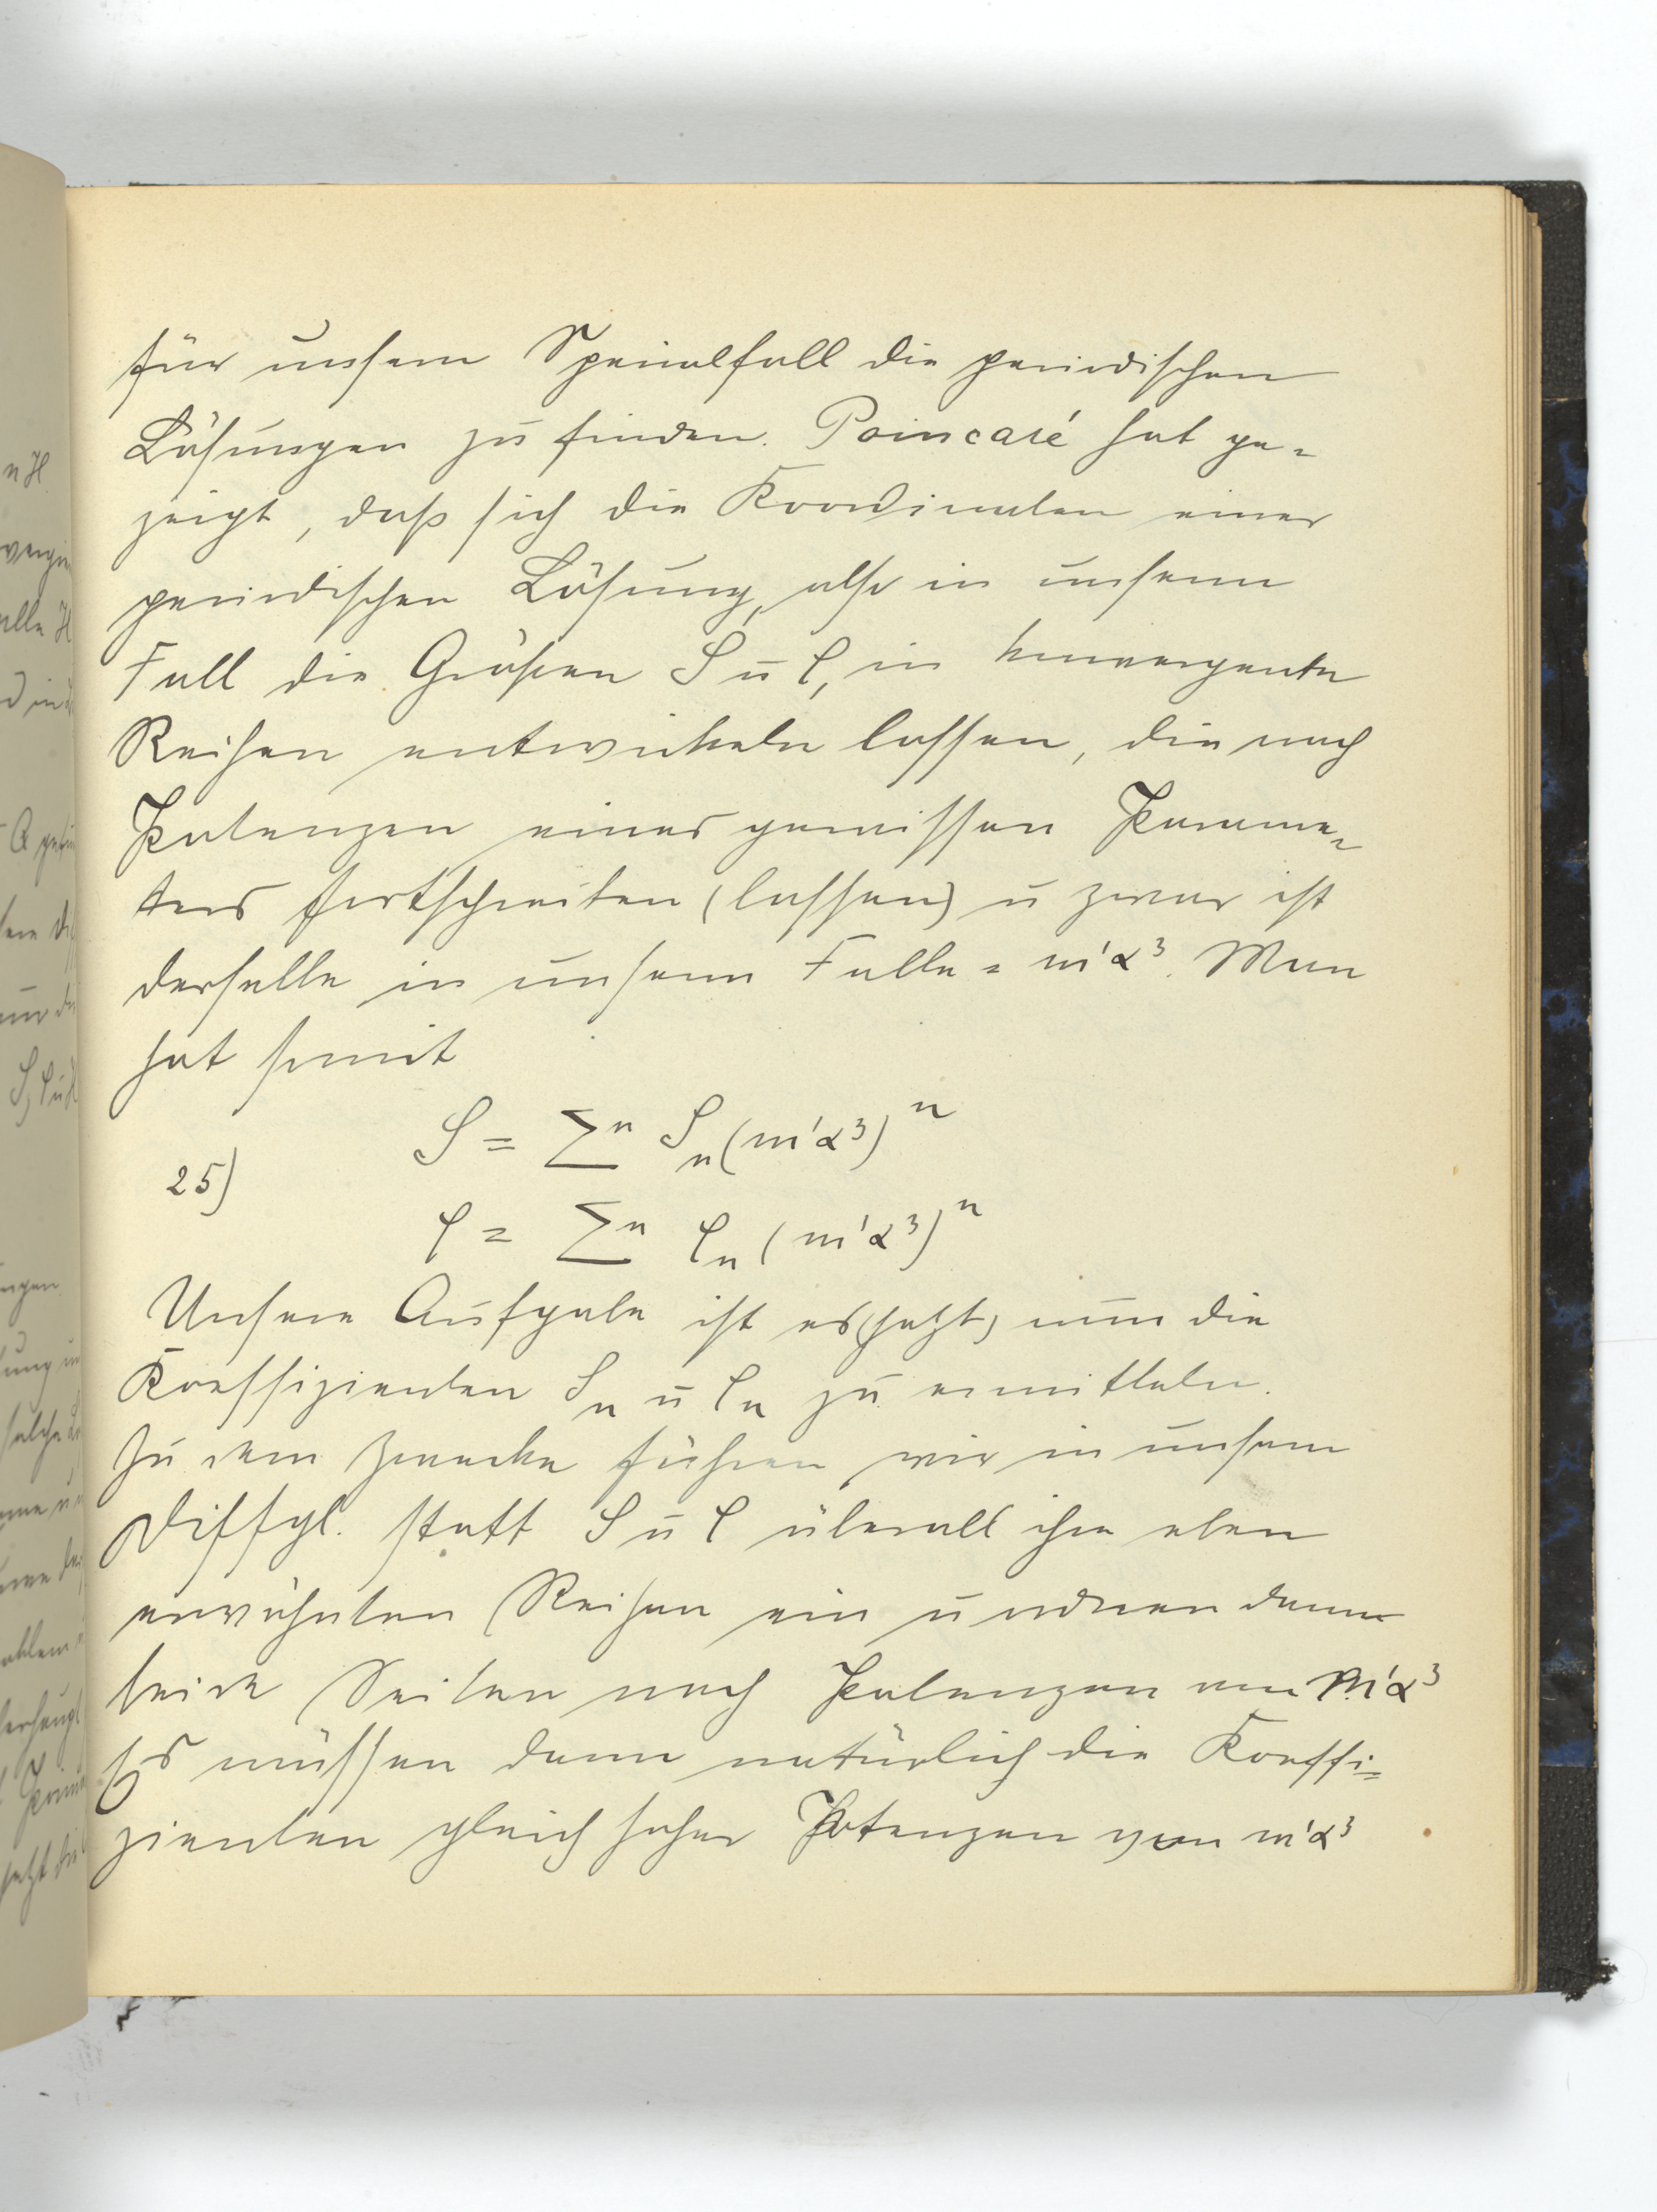 für unsern Spezialfall die periodischen
Lösungen zu finden. Poincaré hat ge=
zeigt, daß sich die Koordinaten einer
periodischen Lösung, also in unserm
Fall die Größen S u l, in konvergente
Reihen entwickeln lassen, die nach
Potenzen eines gewissen Parame=
ters fortschreiten (lassen) u zwar ist
derselbe in unserm Falle = m'α³. Man
hat somit
S = Σⁿ Sₙ(m'α³)ⁿ
25)
l = Σⁿ lₙ(m'α³)ⁿ
Unsere Aufgabe ist es (jetzt) nun die
Koeffizienten Sₙ u lₙ zu ermitteln.
Zu dem Zwecke führen wir in unsern
Diffgl. statt S u l überall ihre eben
erwähnten Reihen ein u ordnen dann
beide Seiten nach Potenzen von m'α³
Es müssen dann natürlich die Koeffi=
zienten gleich hoher Potenzen von m'α³